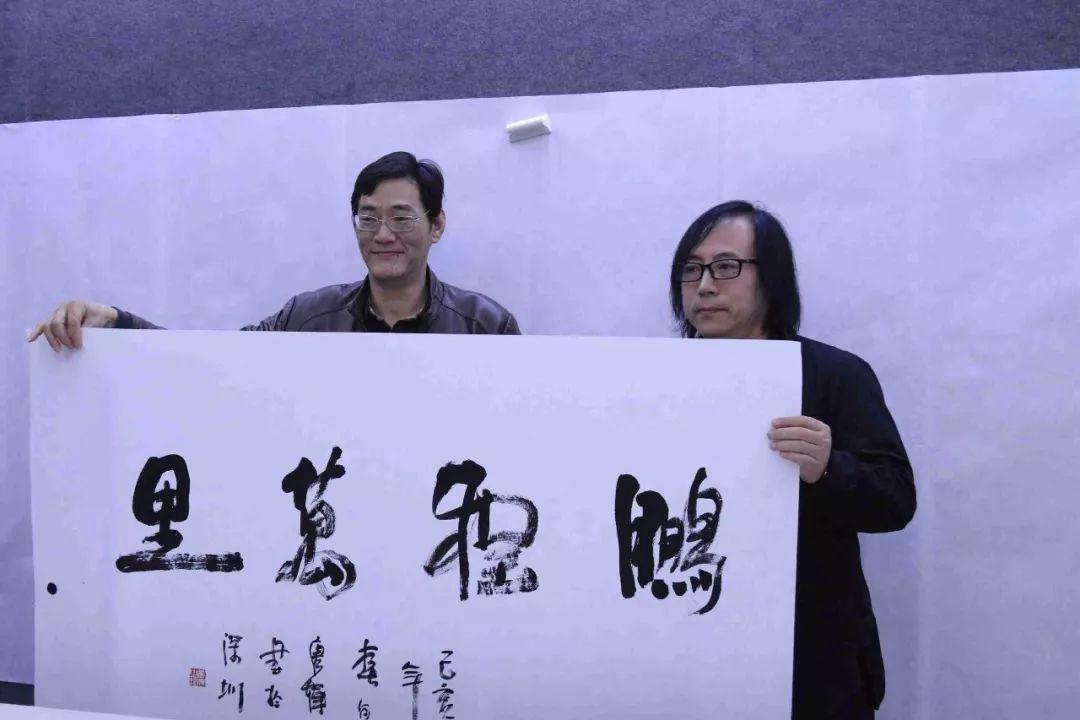 鵬程萬里
己亥
年
書於
深圳